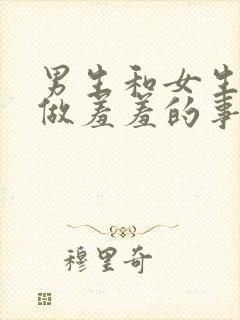 男生和女生
做羞羞的事
穆里奇